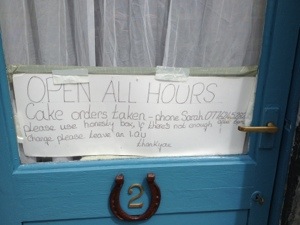 OPEN ALL HOURS
Cake orders taken - phone Sarah
please use honesty box, if there's not enough
change please leave an I.O.U
thankyou
2